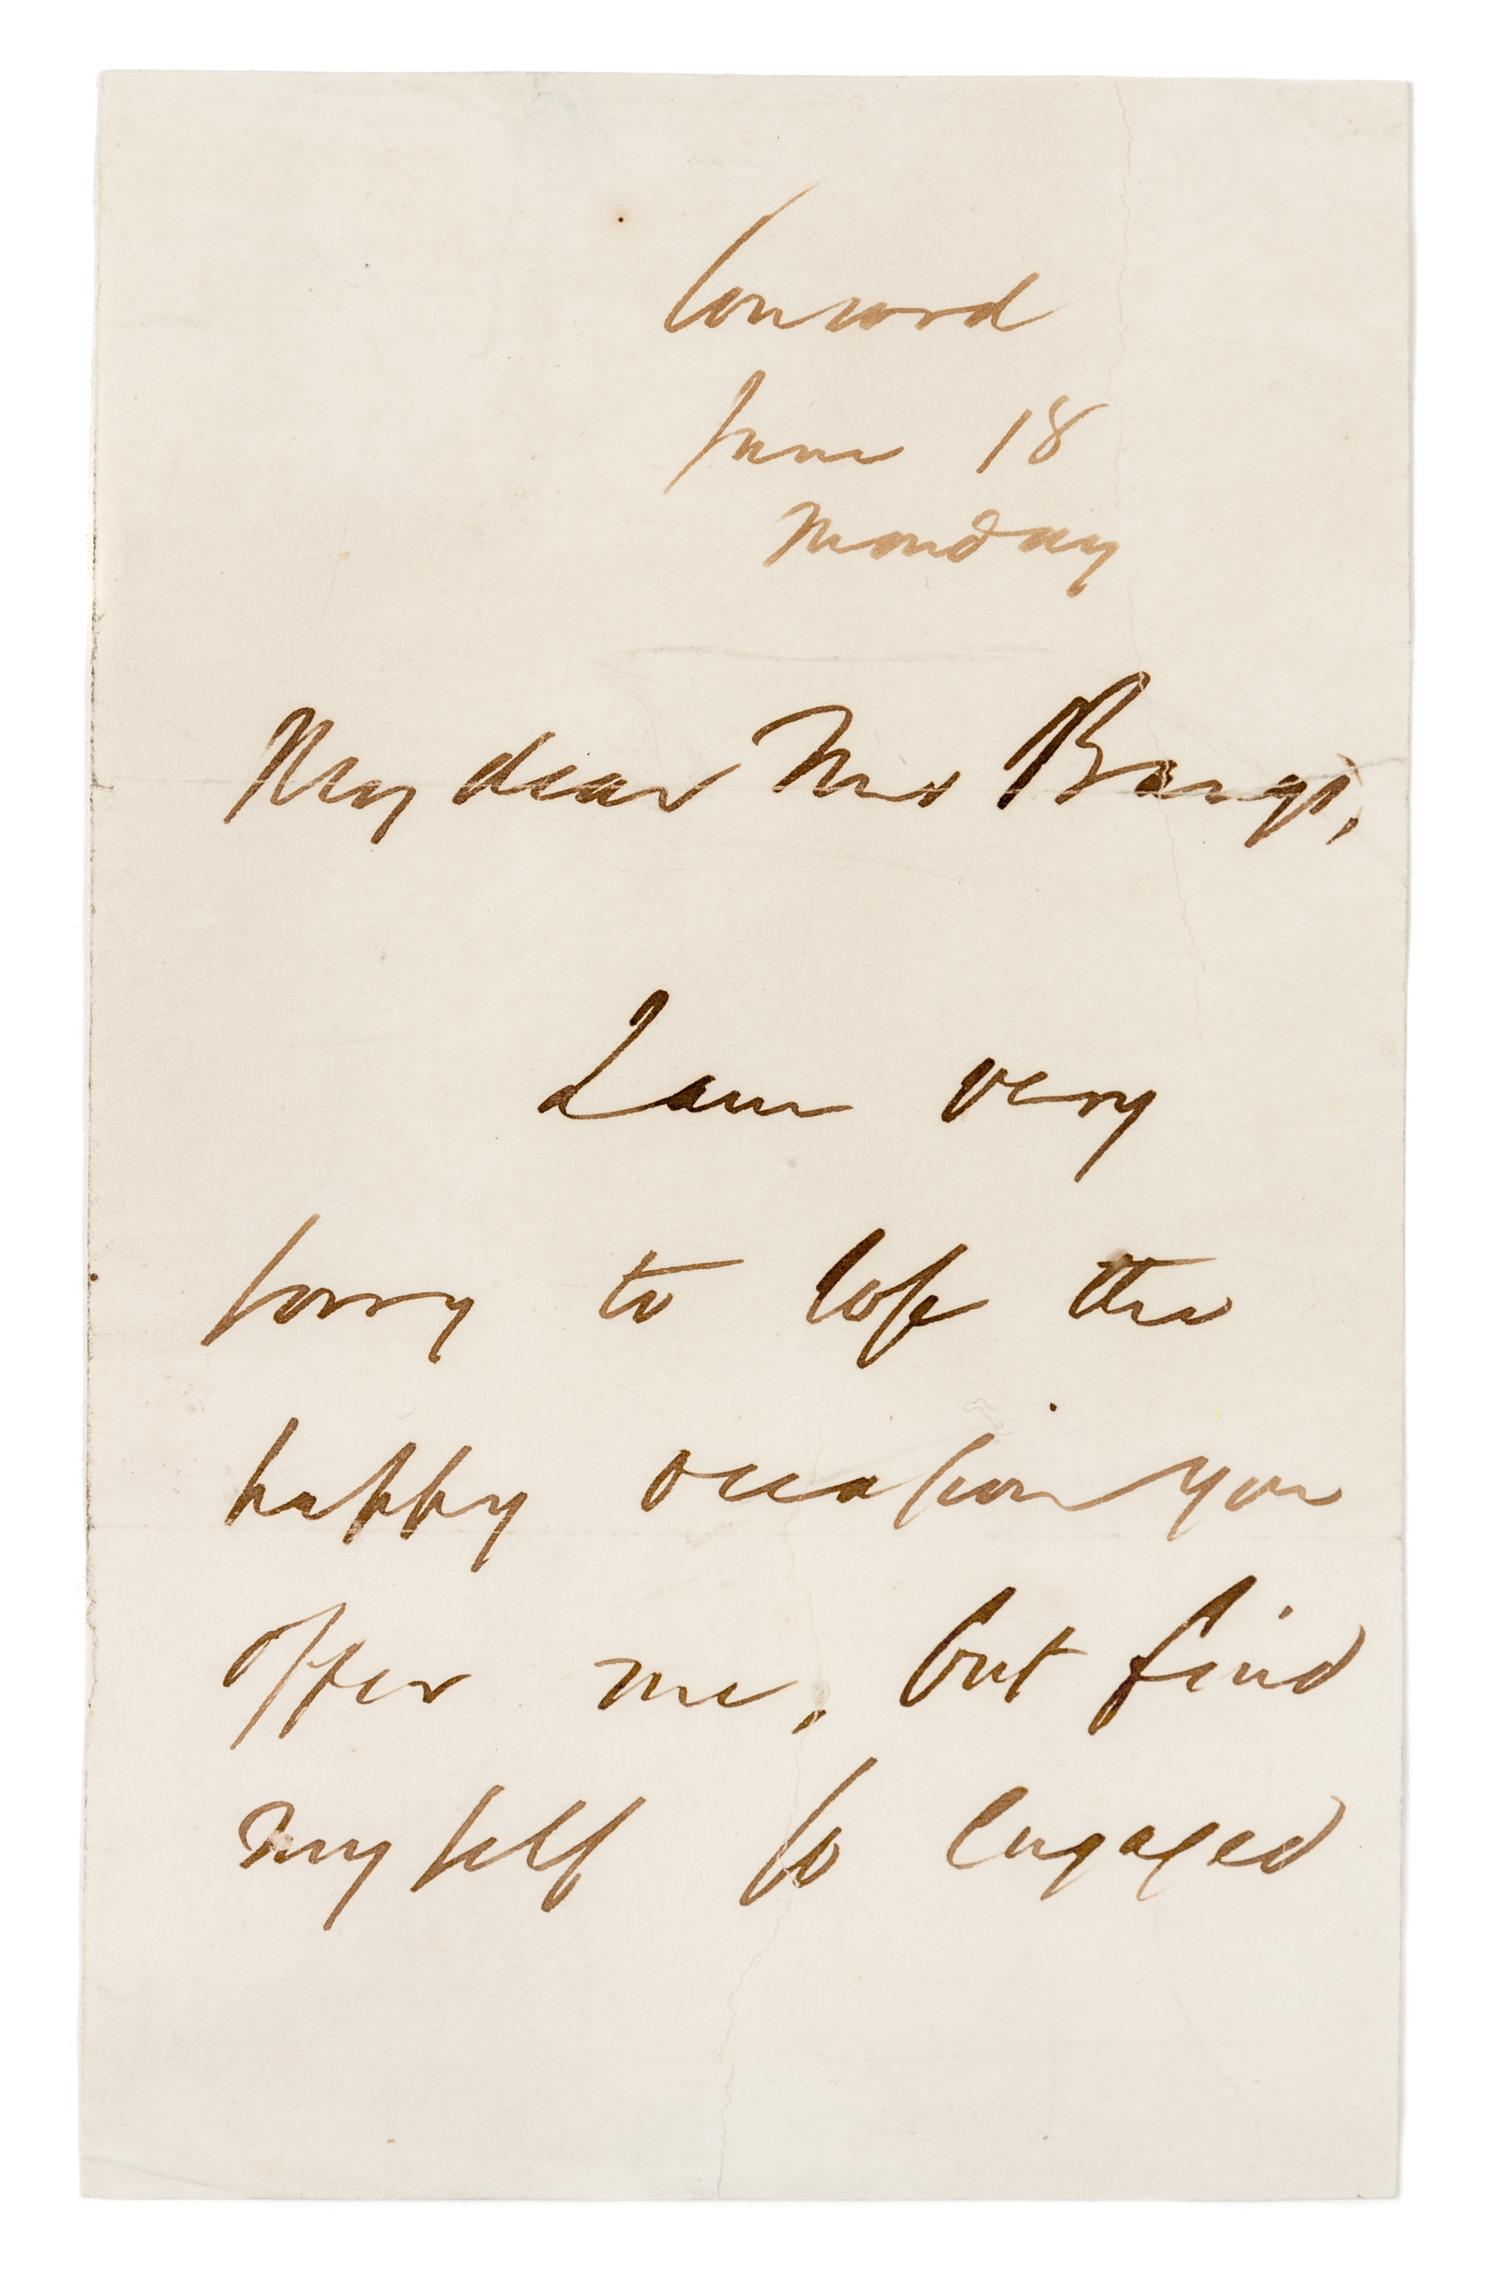 Concord
June 18
Monday
My dear Mrs Bangs,
I am very
sorry to lose the
happy occasion you
offer me, but find
myself so engaged